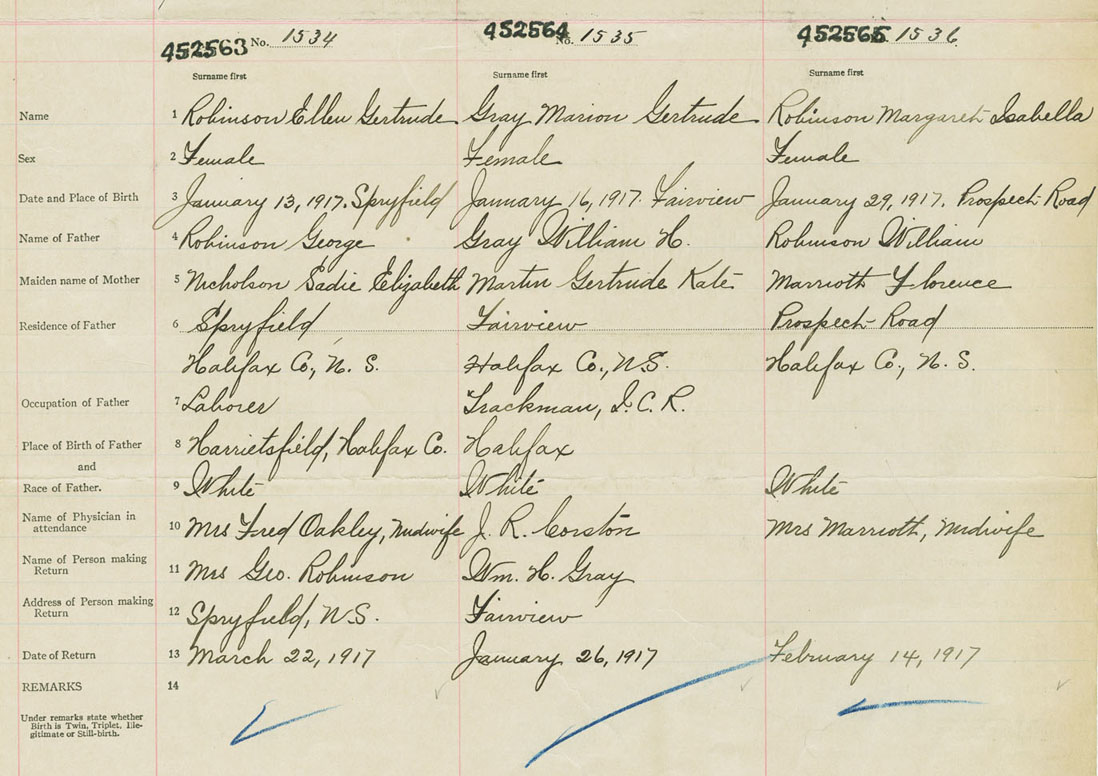 452563 No. 1534 452564 No. 1535 452565 1536
Surname first Surname first Surname first
Name 1 Robinson Ellen Gertrude Gray Marion Gertrude Robinson Margaret Isabella
Sex 2 Female Female Female
Date and Place of Birth 3 January 13, 1917. Spryfield January 16, 1917. Fairview January 29, 1917. Prospect Road
Name of Father 4 Robinson George Gray William H. Robinson William
Maiden name of Mother 5 Nicholson Sadie Elizabeth Martin Gertrude Kate Marriott Florence
Residence of Father 6 Spryfield Fairview Prospect Road
Halifax Co., N. S. Halifax Co., N.S. Halifax Co., N. S.
Occupation of Father 7 Laborer Trackman, I. C. R.
Place of Birth of Father 8 Harrietsfield, Halifax Co. Halifax
and
Race of Father. 9 White White White
Name of Physician in
attendance 10 Mrs Fred Oakley, Midwife J. R. Corston Mrs Marriott, Midwife
Name of Person making
Return 11 Mrs Geo. Robinson Wm. H. Gray
Address of Person making
Return 12 Spryfield, N.S. Fairview
Date of Return 13 March 22, 1917 January 26, 1917 February 14, 1917
REMARKS 14
Under remarks state whether
Birth is Twin, Triplet, Ille-
gitimate or Still-birth.